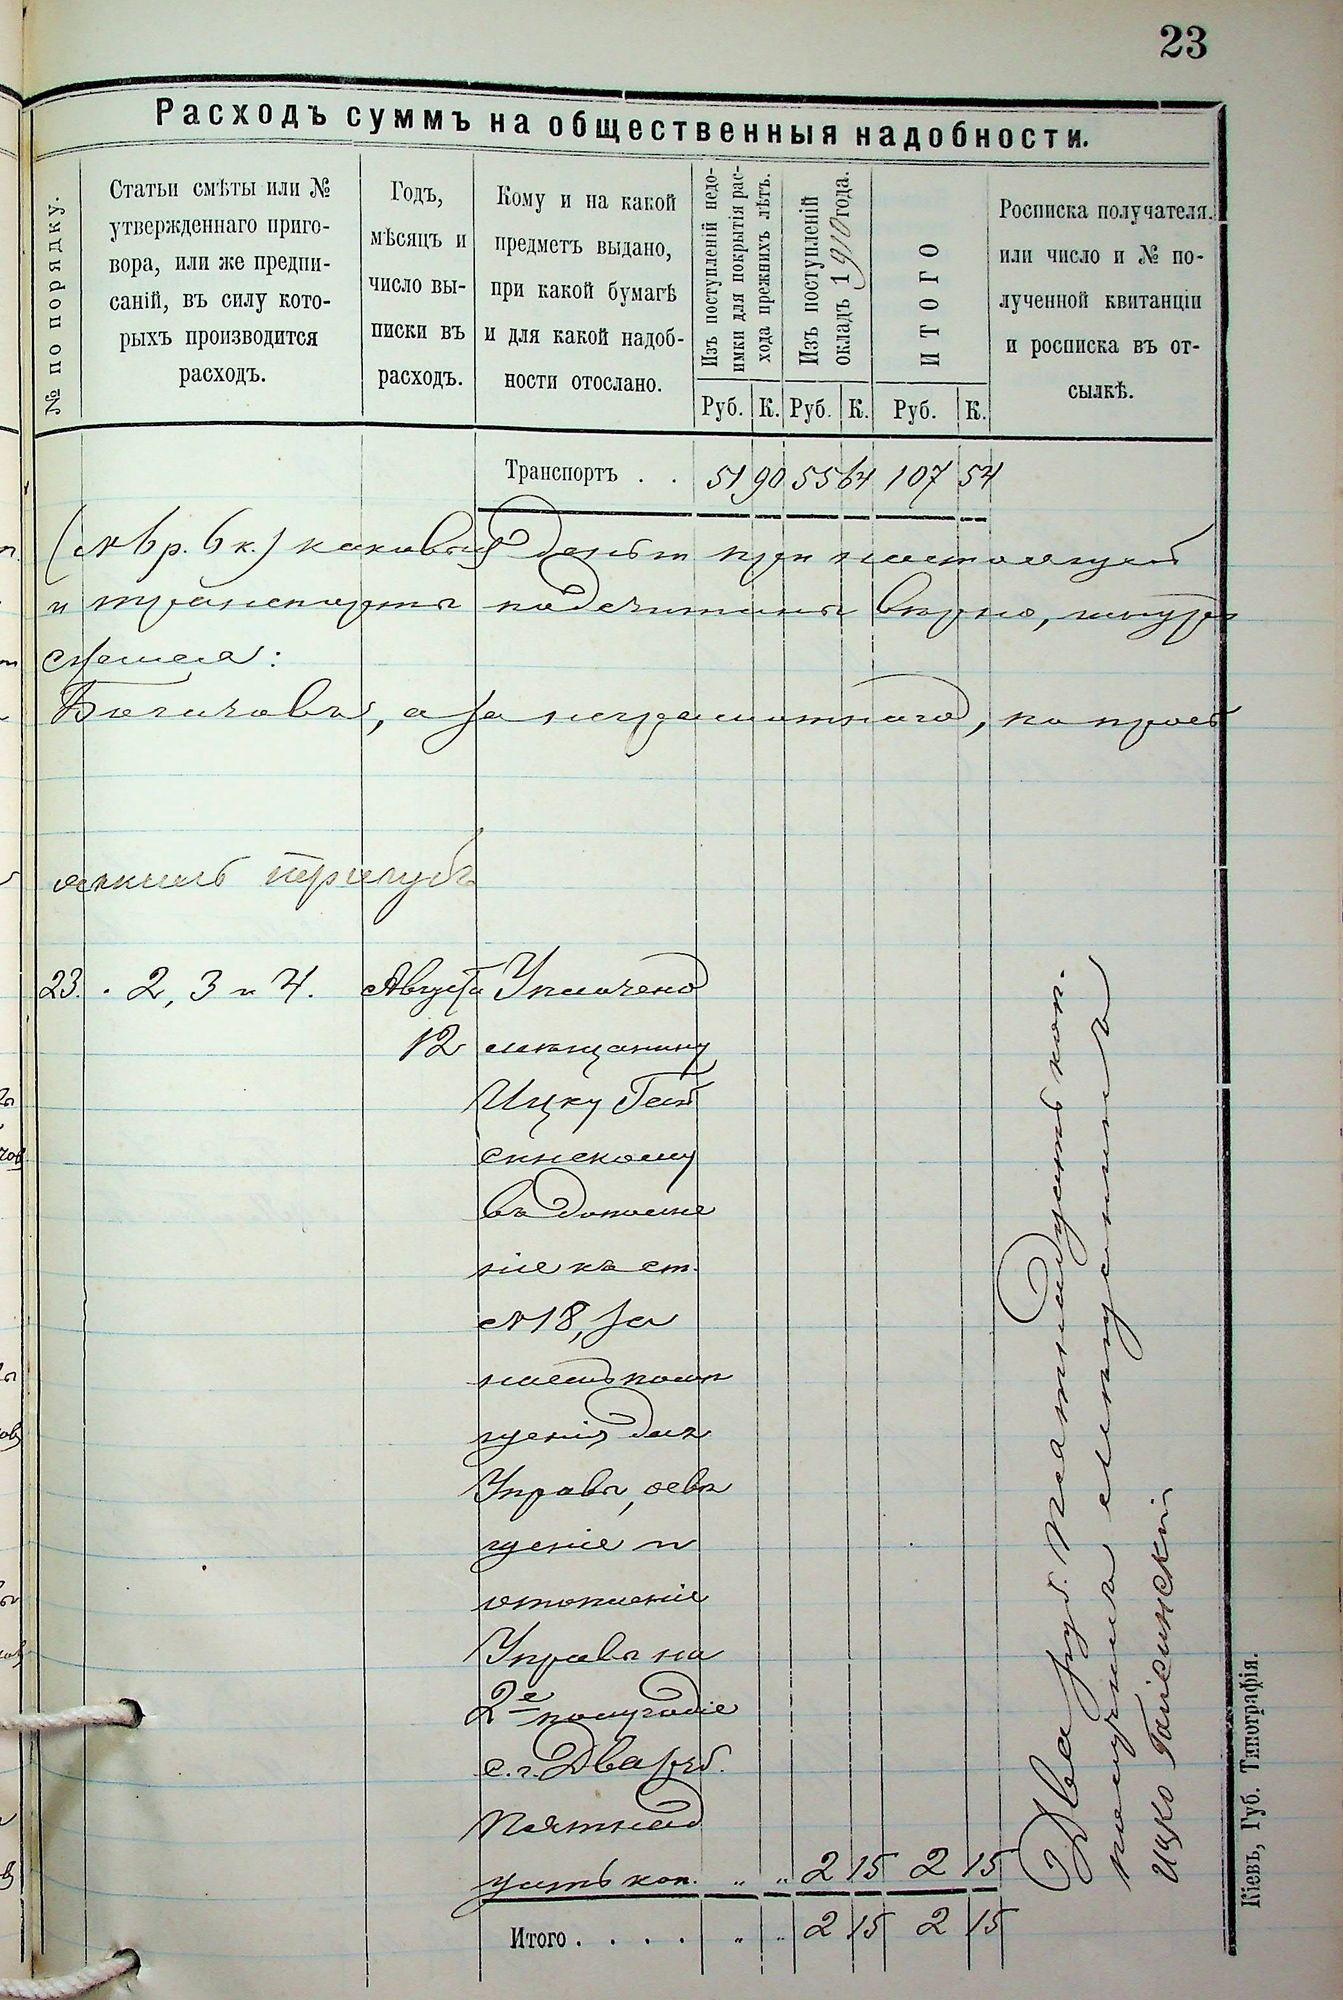 23
Расходъ суммъ на общественныя надобности.
№ по порядку.
Статьи смѣты или №
утвержденнаго приго-
вора, или же предпи-
саній, въ силу кото-
рыхъ производится
расходъ.
Годъ,
мѣсяцъ и
число вы-
писки въ
расходъ.
Кому и на какой
предметъ выдано,
при какой бумагѣ
и для какой надоб-
ности отослано.
Изъ поступленій недо-
имки для покрытія рас-
хода прежнихъ лѣтъ.
Изъ поступленій
окладъ 1910 года.
ИТОГО
Росписка получателя,
или число и № по-
лученной квитанціи
и росписка въ от-
сылкѣ.
Руб. К. Руб. К. Руб. К.
Транспортъ . . 51 90 55 64 107 54
6 р. 6 к.) каковыя деньги при настоящей
и транспорты подсчитаны вѣрно,
, а за неграмотнаго, по прось
23. 2, 3 и 4. Августа Уплачено
12 мѣщанину
Ицку Гай
синскому
въ дополне
ніе къ ст.
№ 18, за
наемъ помѣ
щенія для
Управы, освѣ
щеніе и
отопленіе
Управы на
2е полугодіе
с. г. Два руб.
пятнад
цать коп. " " 2 15 2 15
Итого . . . . " " 2 15 2 15
Два руб. пятнадцать коп.
получилъ мѣщанинъ
Ицко Гайсинскій
Кіевъ, Губ. Типографія.